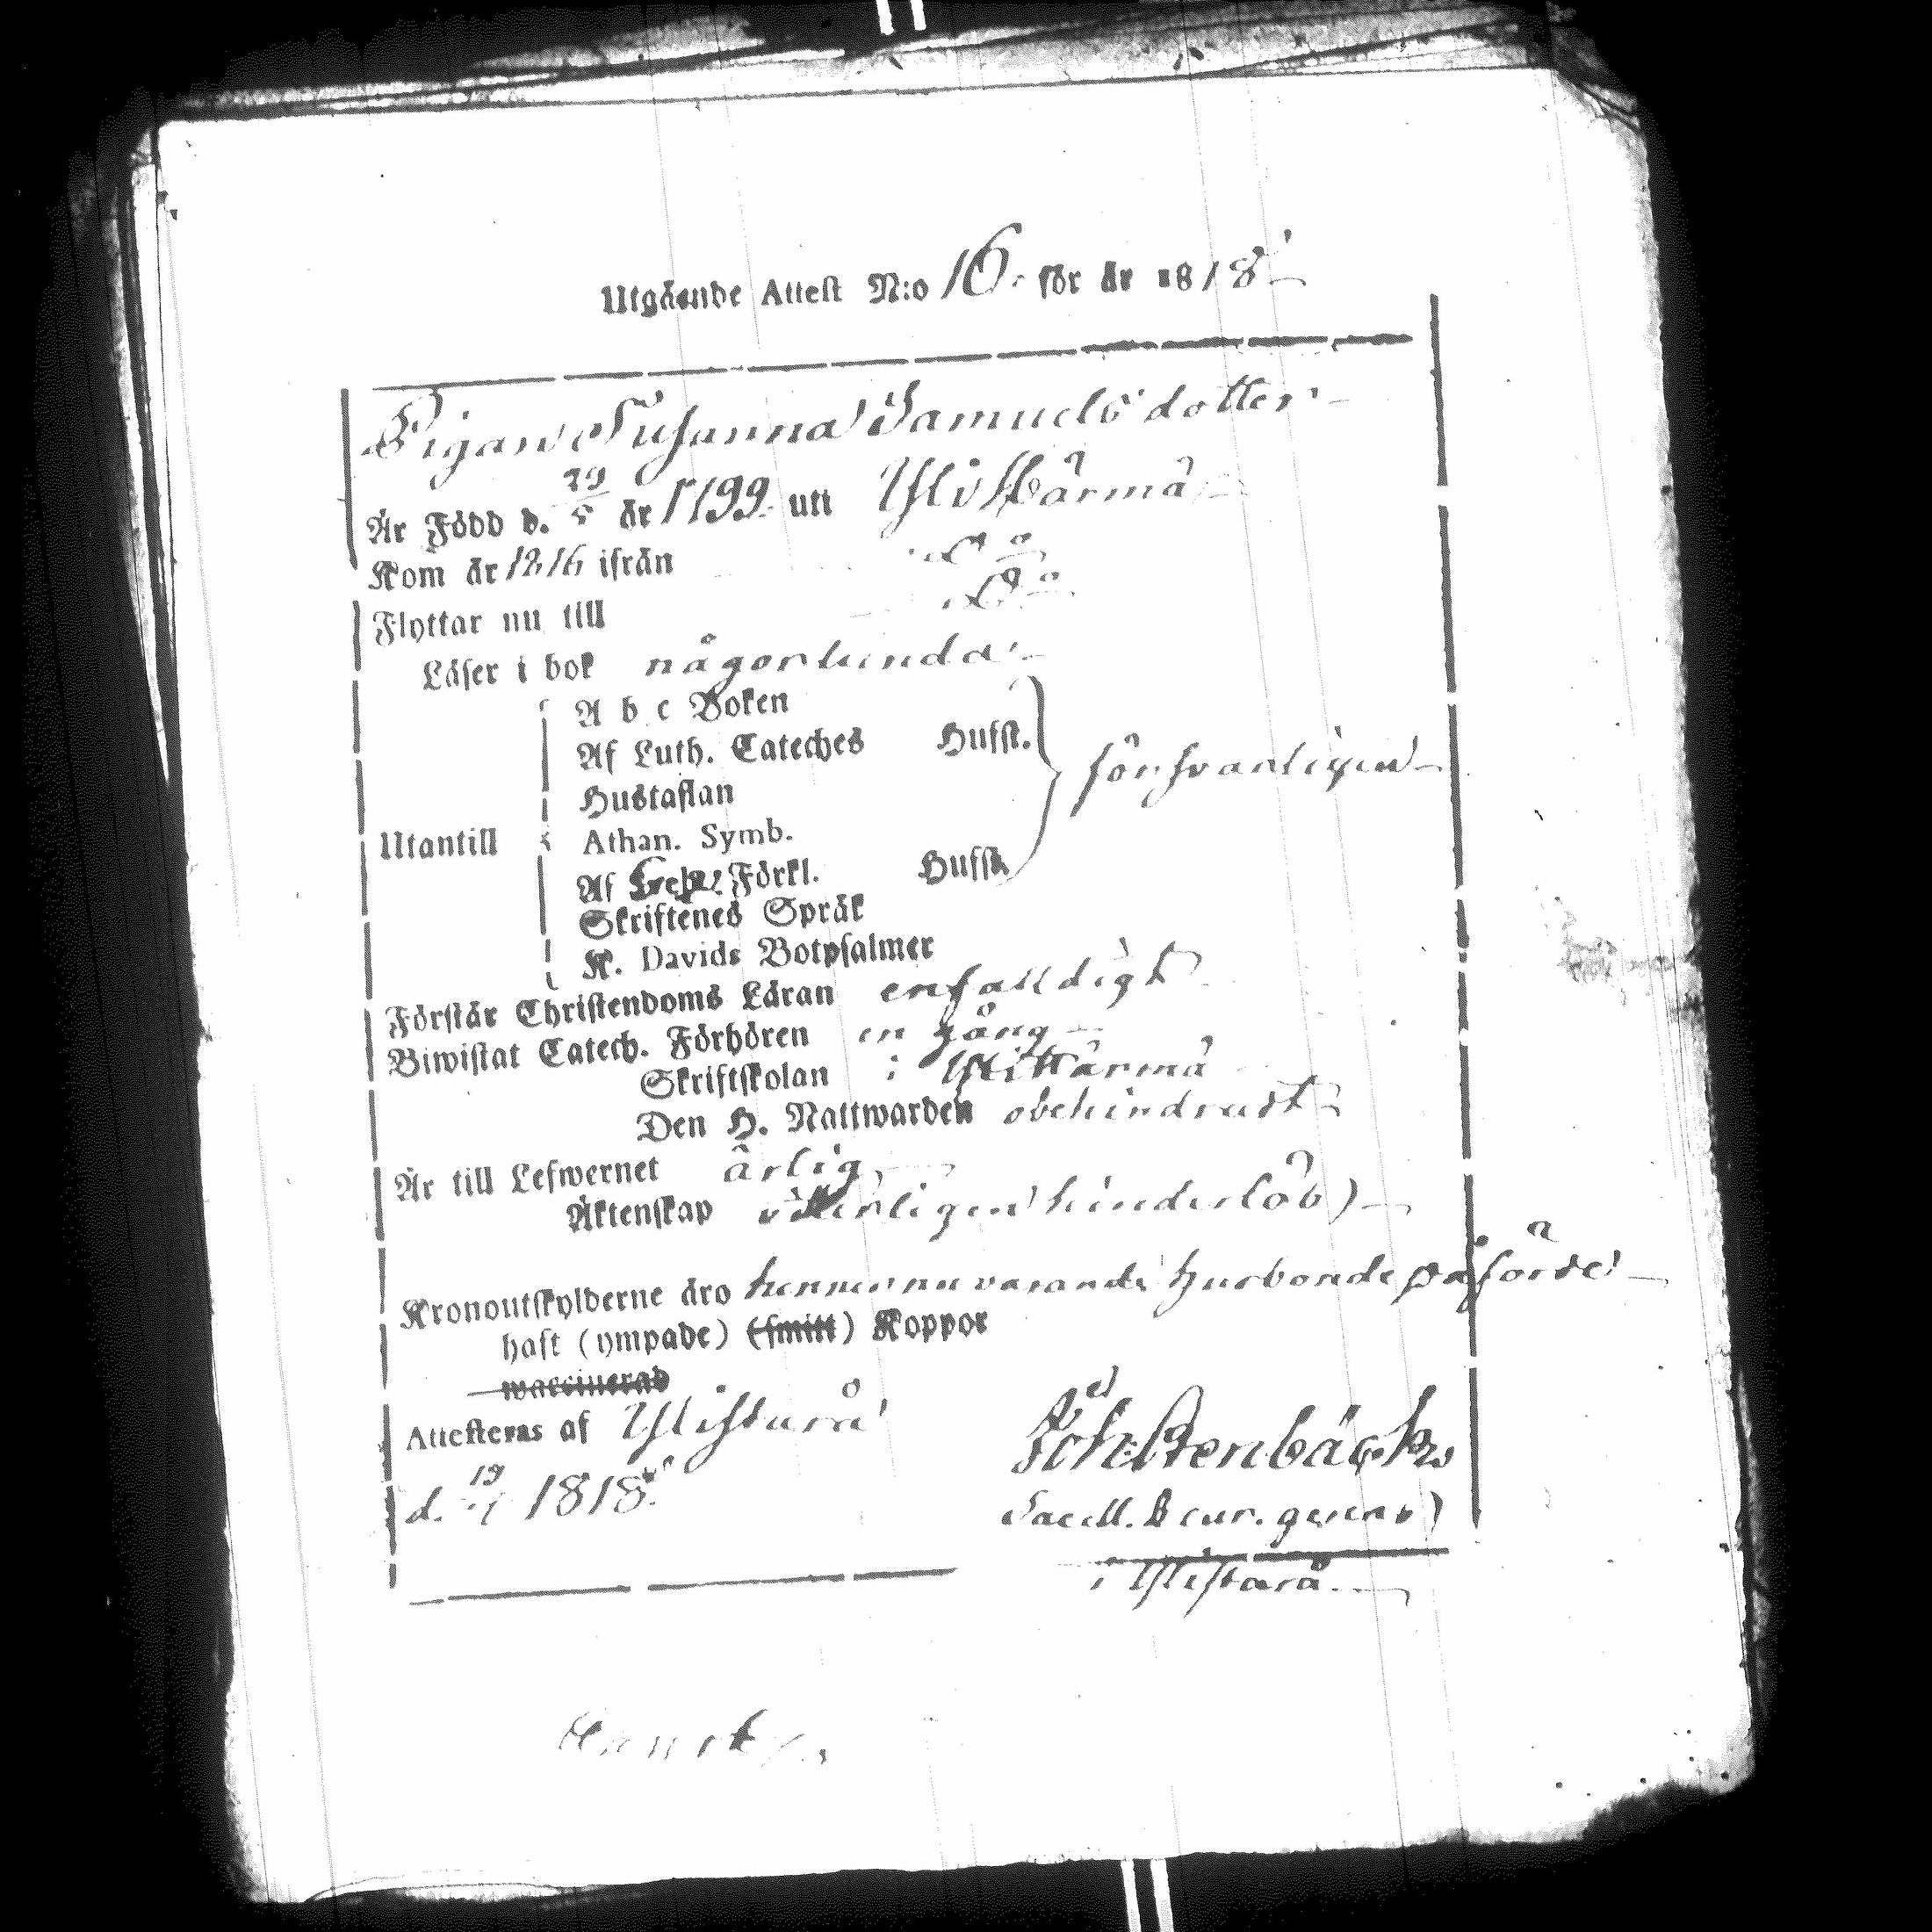 Utgående Attest N:o 16. för år 1818
Pigan Susanna Samuels dotter
Är Född d. 29/5 år 1799 uti Ylistårmå
Kom år 1816 ifrån D:o
Flyttar nu till D:o
Läser i bok någorlunda
A b c Boken
Af Luth. Cateches Hufst.
Hustaflan
Utantill Athan. Symb. försvarligen
Af Förkl. Hufst.
Skriftenes Språk
K. Davids Botpsalmer
Förstår Christendoms Läran enfalldigt
Biwistat Catech. Förhören en gång
Skriftskolan i
Den H. Nattwarden obehindradt
Är till Lefwernet ärlig
Äktenskap veterligen hinderlös
Kronoutskylderne äro hennes nu varande Husbonde påförde
haft (ympade) (smitt) Koppor
waccinerad
Attesteras af Ylistarå
d. 19/ 1818
Joh: Stenbäck
Sacell. & cur. gerens
i Ylistarå